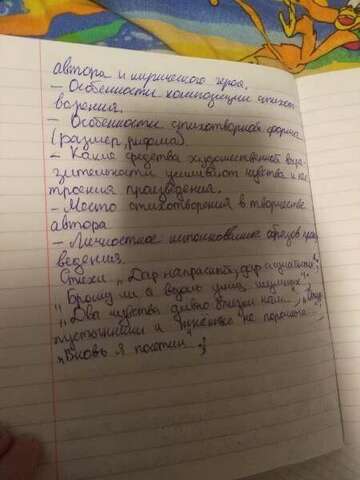 автора и лирического героя.
– Особенности композиции стихот
ворения.
– Особенности стихотворной формы
(размер, рифма).
– Какие средства художественной выра
зительности усиливают чувства и нас
троения произведения.
– Место стихотворения в творчестве
автора
– Личностное истолкование образов прои
ведения.
Стихи „Дар напрасный, дар случайный",
„Брожу ли я вдоль улиц шумных",
„Два чувства дивно близки нам",
пустынники и не порочны
„Вновь я посетил"